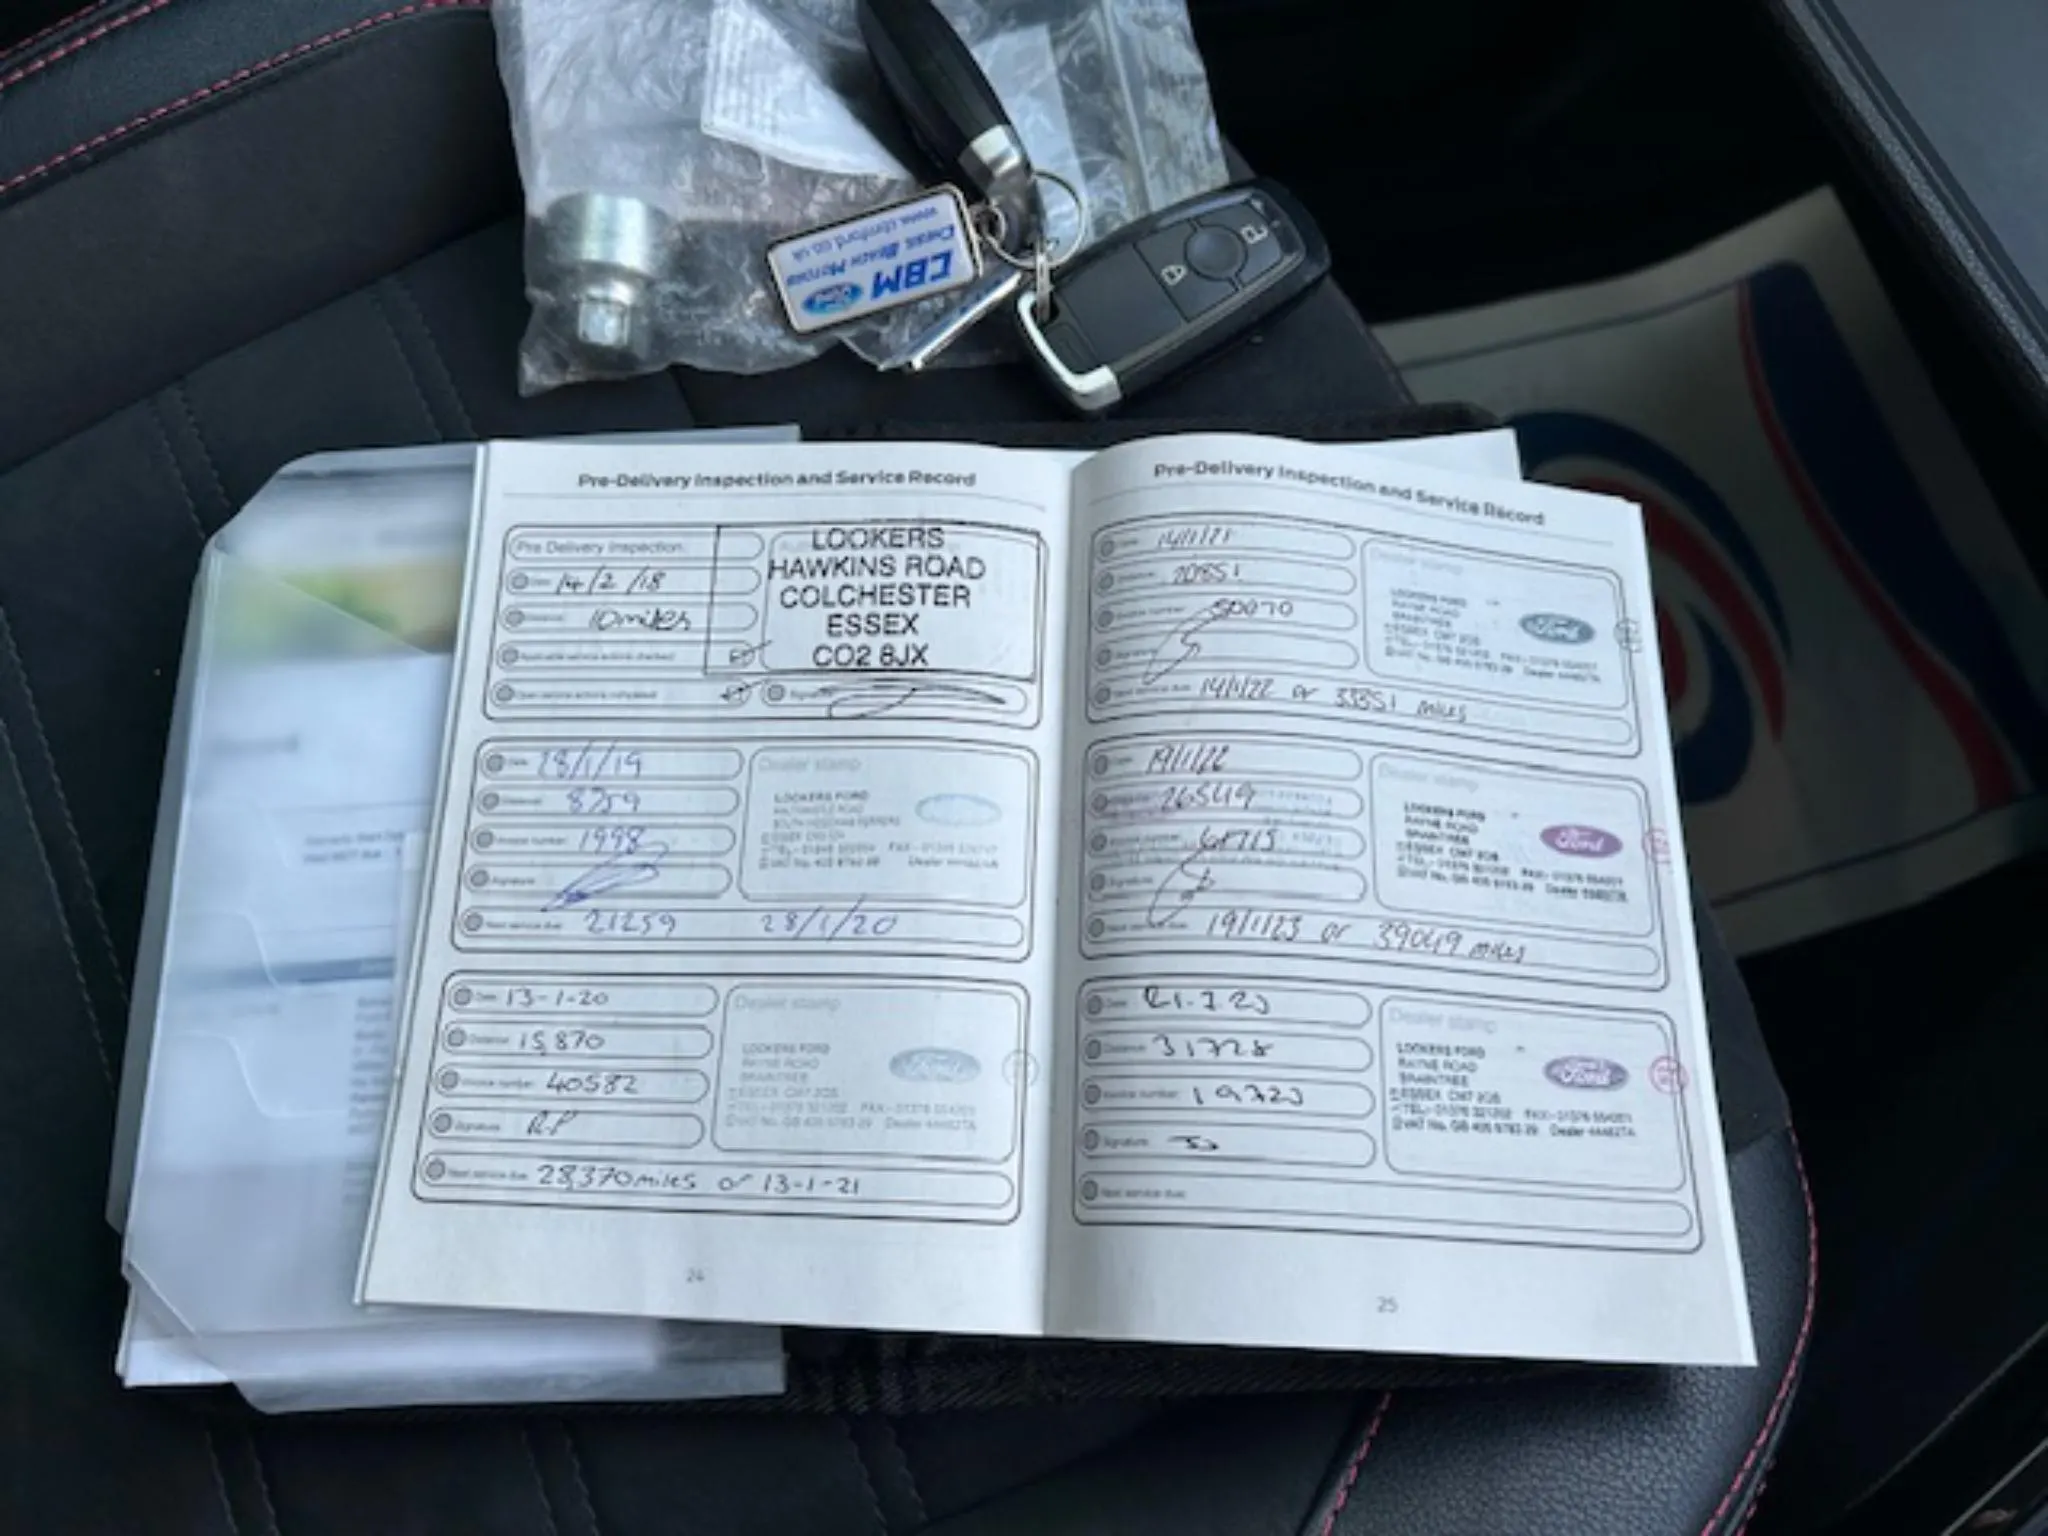 CBM
Ford
CHRIS BEACH MOTORS
www.cbmford.co.uk
Pre-Delivery Inspection and Service Record
Pre Delivery Inspection:
LOOKERS
HAWKINS ROAD
COLCHESTER
ESSEX
CO2 8JX
Date: 14/2/18
Distance: 10 miles
Applicable service actions checked
Open service actions completed
Signature
Date: 28/1/19
Distance: 8759
Invoice number: 1998
Signature:
Next service due: 21259 28/1/20
Dealer stamp
LOOKERS FORD
Date: 13-1-20
Distance: 15,870
Invoice number: 40582
Signature: R.P
Next service due: 28,370 miles or 13-1-21
Dealer stamp
LOOKERS FORD
RAYNE ROAD
BRAINTREE
ESSEX CM7 2QS
TEL:- 01376 321202 FAX:- 01376 554201
VAT No. GB 405 9783 29
Ford
24
Pre-Delivery Inspection and Service Record
Date: 14/1/21
Distance: 20851
Invoice number: 50070
Signature:
Next service due: 14/1/22 or 33351 miles
Dealer stamp
LOOKERS FORD
RAYNE ROAD
BRAINTREE
ESSEX CM7 2QS
TEL:- 01376 321202 FAX:- 01376 554201
VAT No. GB 405 9783 29
Ford
Date: 19/1/22
Distance: 26549
Invoice number:
Signature:
Next service due: 19/1/23 or 39049 miles
Dealer stamp
LOOKERS FORD
RAYNE ROAD
BRAINTREE
ESSEX CM7 2QS
TEL:- 01376 321202 FAX:- 01376 554201
VAT No. GB 405 9783 29
Ford
Date:
Distance: 31728
Invoice number: 19723
Signature:
Next service due:
Dealer stamp
LOOKERS FORD
RAYNE ROAD
BRAINTREE
ESSEX CM7 2QS
TEL:- 01376 321202 FAX:- 01376 554201
VAT No. GB 405 9783 29
Ford
25